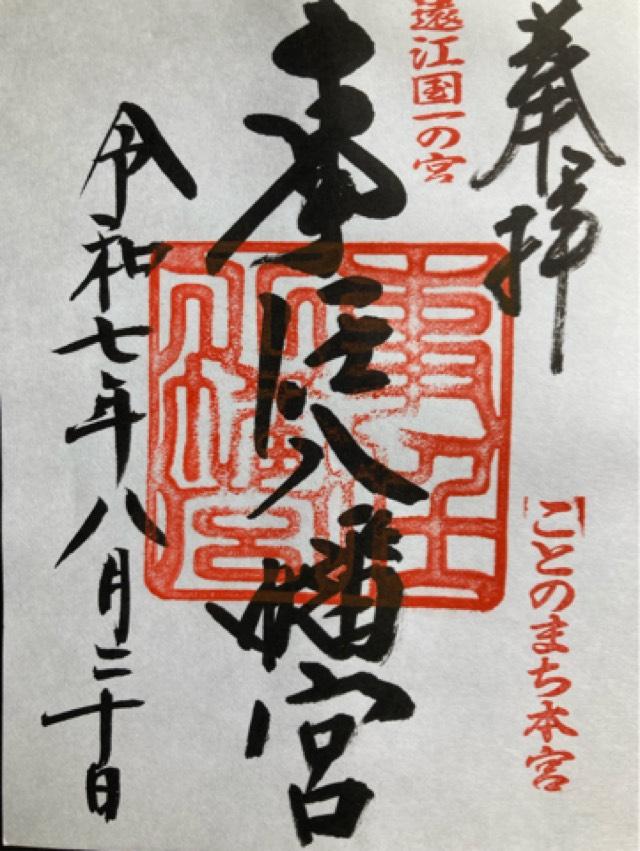 奉拝
遠江国一の宮
ことのまち本宮
事任八幡宮
事任八幡宮
令和七年八月二十日